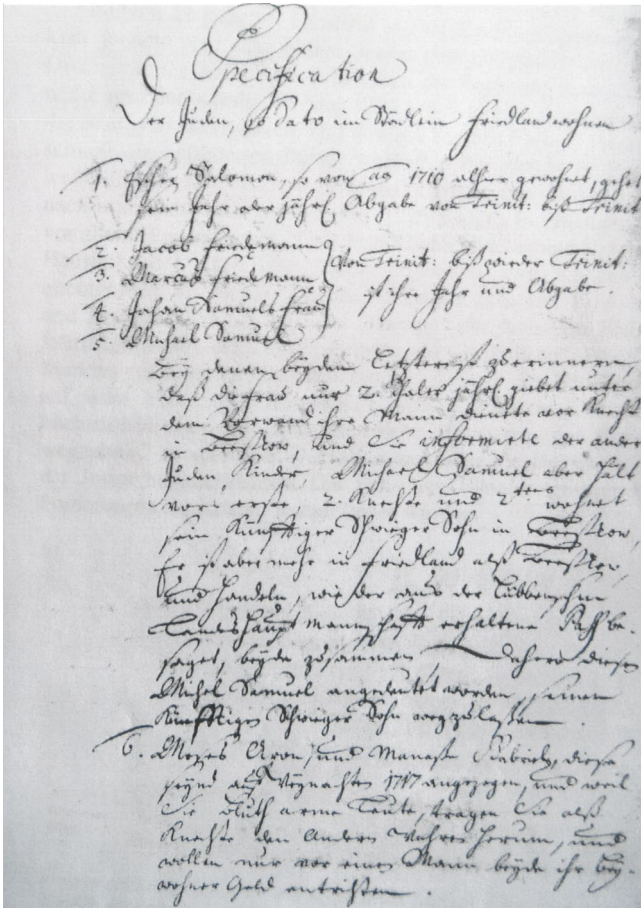 Specification
Der Juden, so dato im Städlein Friedland wohnen
1. Esther Salomon, so von ao 1710 alhier gewohnet, gehet
sein Jahr oder jährl. Abgabe von Trinit: biß Trinit
2. Jacob Friedemann
3. Marcus Friedemann
4. Johan Samuels Frau
5. Michael Samuel
von Trinit: biß wieder Trinit:
ist ihre Jahr und Abgabe.
Bey denen beyden letztere ist zu erinnern,
daß die Frau nur 2. Thaler jährl. giebet unter
dem Vorwand ihr Mann diente vor Knecht
in Beeskow, und Sie informiete der andern
Juden, Kinder, Michael Samuel aber hält
vors erste, 2. Knechte und 2tens wohnet
sein künfftiger Schwieger Sohn in Beeskow,
Er ist aber mehr in Friedland alß Beeskow,
und handeln, wie der aus der Lübbenschen
Landeshauptmannschafft erhaltene Paß be-
saget, beyde zusammen, Dahero diesen
Michel Samuel angedeutet worden, seinen
künfftigen Schwieger Sohn wegzulaßen.
6. Moses Aron, und Manaße Gabriel, diese
seynd auf Weynachten 1717 angezogen, und weil
Sie bluth arme Leute, tragen Sie alß
Knechte den andern Wahren herum, und
wollen nur vor einen Mann beyde ihr Bey-
wohner Geld entrichten.